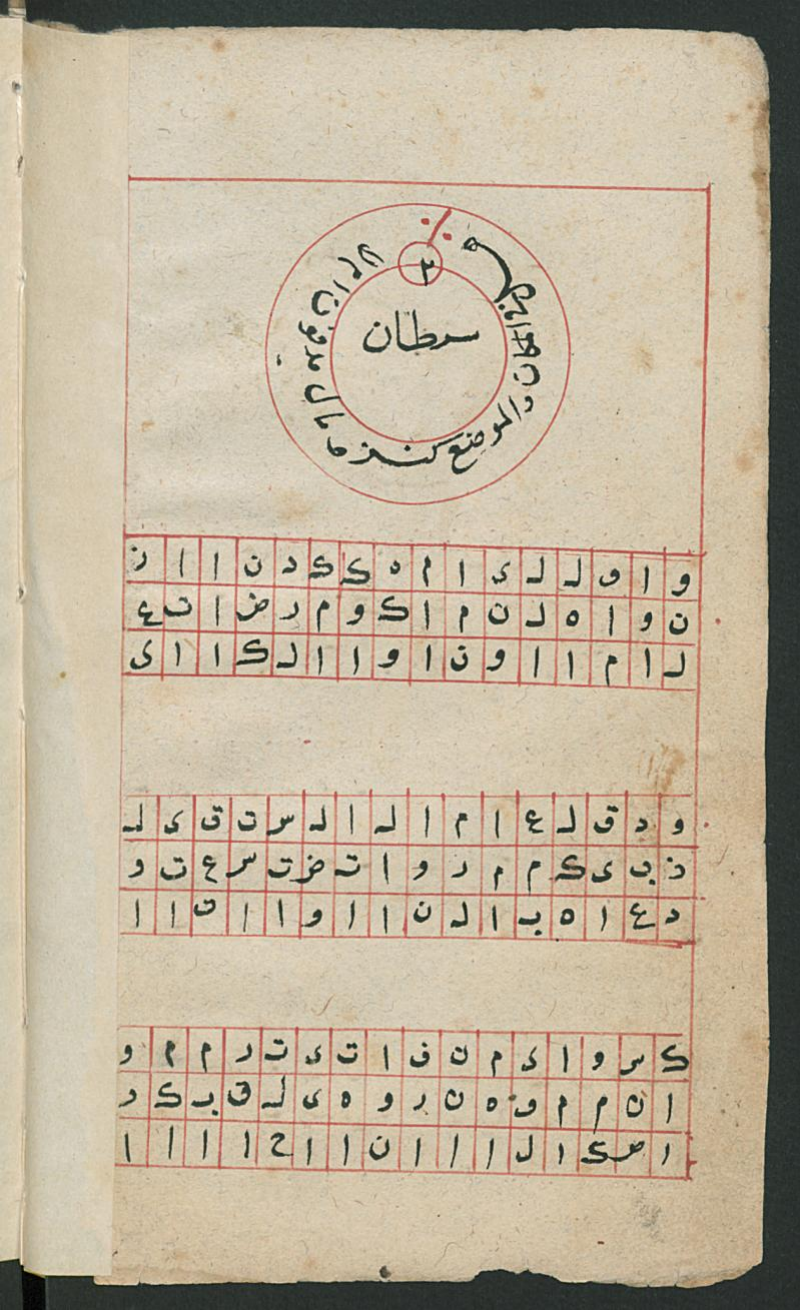 ٣
سرطان
والموضع كنز و مال مدفون ام لا
و ا و ل ل ى ا م ه ك ك د ن ا ا ن
ن و ا ه ل ن م ا ك و م ر ض ا ت ع
ل ا م ا ا و ن ا و ا ا ل ك ا ا ى
و د ق ل ع ا م ا ل ا ل س ت ق ى ل
ى ك م م ر و ا ت ض ت س ع ت و
د ع ا ه ب ا ل ن ا ا و ا ا ق ا ا
ك س و ا ى م ن ف ا ت ى ت ر م م و
ا ن م م و ه ن ر و ه ى ل ق ب ك د
ا ص ك ا ل ا ا ا ن ا ا ح ا ا ا ا